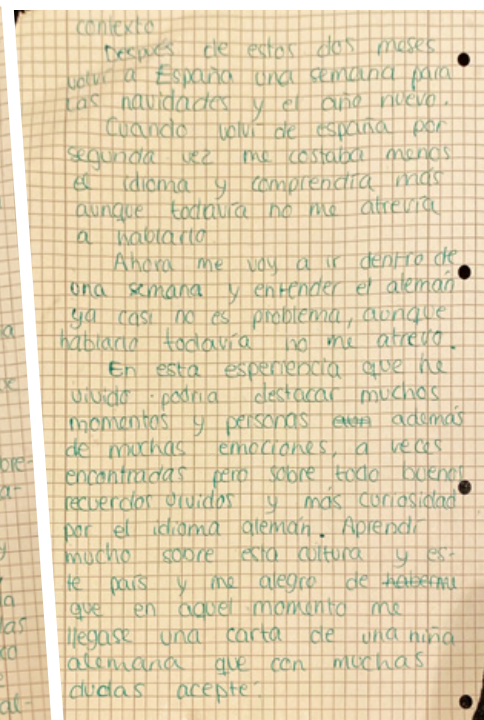 contexto
Después de estos dos meses
volví a España una semana para
las navidades y el año nuevo.
Cuando volví de españa por
segunda vez me costaba menos
el idioma y comprendía más
aunque todavía no me atrevía
a hablarlo
Ahora me voy a ir dentro de
una semana y entender el alemán
ya casi no es problema, aunque
hablarlo todavía no me atrevo.
En esta esperiencia que he
vivido podría destacar muchos
momentos y personas además
de muchas emociones, a veces
encontradas pero sobre todo buenos
recuerdos vividos y más curiosidad
por el idioma alemán. Aprendí
mucho sobre esta cultura y es-
te país y me alegro de haberme
que en aquel momento me
llegase una carta de una niña
alemana que con muchas
dudas acepte.